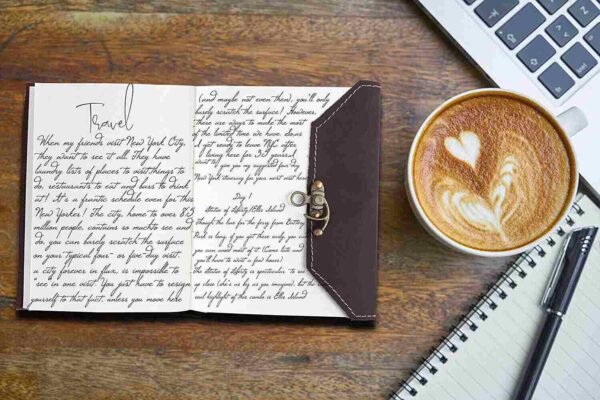 Travel
When my friends visit New York City,
they want to see it all. They have
laundry lists of places to visit, things to
do, restaurants to eat and bars to drink
at! It's a frantic schedule even for this
New Yorker! The city, home to over 8.5
million people, contains so much to see and
do, you can barely scratch the surface
on your typical four- or five-day visit.
a city forever in flux, is impossible to
"see in one visit. You just have to resign
yourself to that fact, unless you move here
(and maybe not even then), you'll only
barely scratch the surface! However,
there are ways to make the most
of the limited time we have
get ready to leave NYC after
living here for 3.5 years
want to give you my suggested four-day
New York itinerary for your next visit
Day 1
Statue of Liberty/Ellis Island
Though the line for the ferry from Battery
Park is long, if you get there early, you
can avoid most of it. (Come late and
you'll have to wait a few hours)
The Statue of Liberty is spectacular to see
up close (she's as big as you imagine), but the
real highlight of this combo is Ellis Island